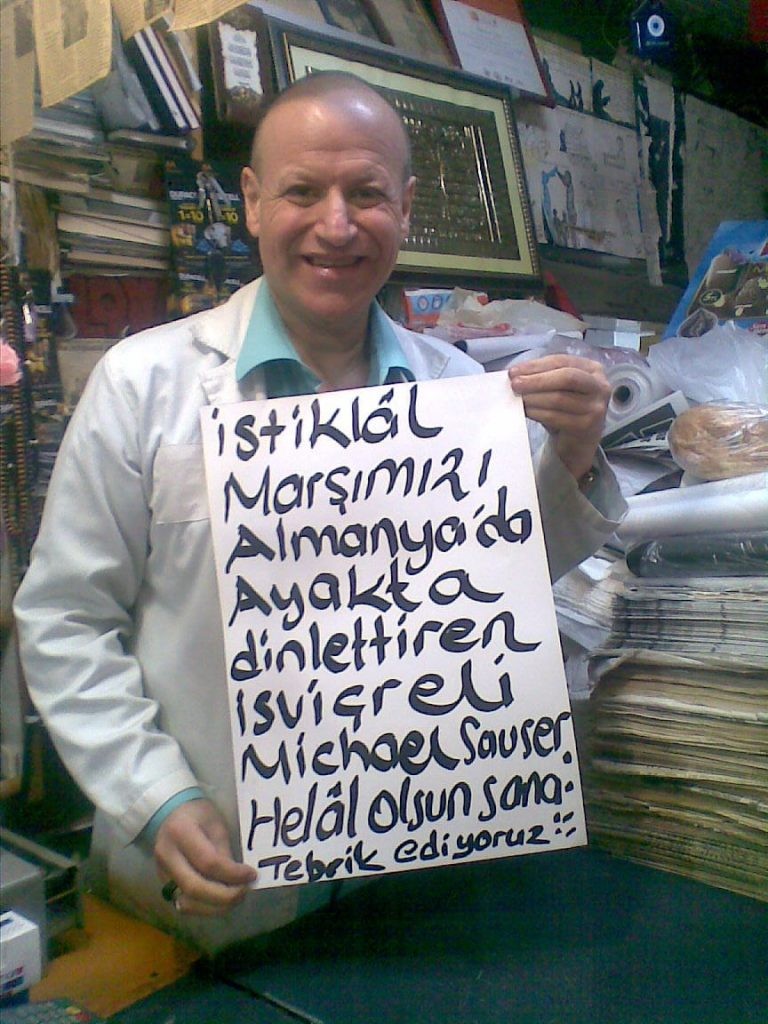 istiklâl
Marşımızı
Almanya'da
Ayakta
dinlettiren
isviçreli
Michael Sauser
Helâl olsun sana:
Tebrik ediyoruz!!